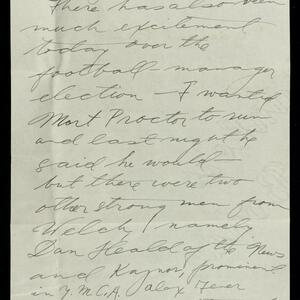 There has also been
much excitement
today over the
football manager
election - I wanted
Mort Proctor to run
and last night he
said he would
but there were two
other strong men from
Welch, namely
Dan Heald of the News
and Kaynor, prominent
in Y.M.C.A. Alex